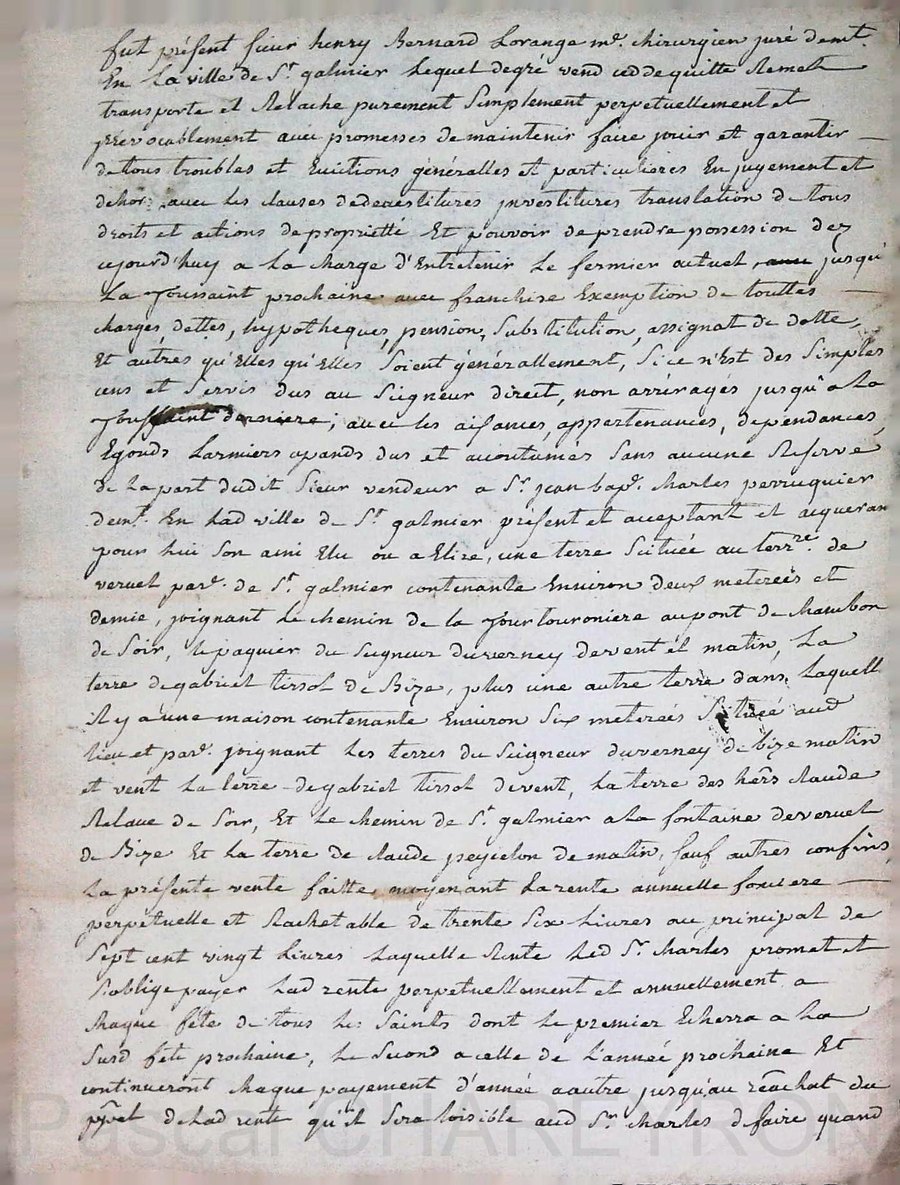 fut présent sieur henry Bernard Lorange me. chirurgien juré demt.
En La ville de St. galmier Lequel degré vend cedde quitte Remet
transporte et Relache purement Simplement perpetuellement et
jrrevocablement avec promesses de maintenir faire jouir et garantir
de tous troubles et Evictions générallés et particulieres En jugement et
dehors avec les clauses dedevestitures jnvestitures translation de tous
droits et actions de proprietté Et pouvoir de prendre possession dez
aujourd'huy a La charge d'Entretenir Le fermier actuel, jusqu'a
La Toussaint prochaine avec franchise Exemption de touttes
charges dettes, hypotheques, pension, Substitution, assignat de dotte,
Et autres qu'Elles qu'Elles Soient générallement, Si ce n'Est des Simples
cens et Servis dus au Seigneur direct, non arréragés jusqu'a La
Toussaint derniere; avec les aisances, appertenances, dépendances,
Egouds Larmiers apands dus et acoutumés Sans aucune Reserve
de La part dudit Sieur vendeur a Sr. jean bapt. Charles perruquier
demt. En Lad ville de St. galmier présent et acceptant et acqueran
pour Lui Son ami Elu ou a Elire, une terre Scituée au terre. de
veruet parse. de St. galmier contenante Environ deux meterées et
demie, joignant Le chemin de la Tourtouroniere au pont de Chambon
de Soir, le paquier du Seigneur duverney de vent et matin, La
terre de gabriel tirsot de Bize, plus une autre terre dans Laquelle
il y a une maison contenante Environ Six meterées Scituée aud
lieu et parse. joignant Les terres du Seigneur duverney de bize matin
et vent La terre de gabriel tirsot de vent, La terre des hers Claude
Relave de Soir, Et Le chemin de St. galmier a La fontaine de veruet
de Bize Et La terre de Claude peycelon de matin, Sauf autres confins
La présente vente faitte moyenant La rente annuelle fonciere
perpetuelle et Rachetable de trente Six Livres au principal de
Sept cent vingt Livres Laquelle Rente Led Sr. Charles promet et
S'oblige payer Lad rente perpetuellement et annuellement a
chaque fête de tous Les Saints dont Le premier Echerra a La
Susd fête prochaine, Le Second a celle de L'année prochaine Et
continueront chaque payement d'année a autre jusqu'au réachat du
ppal de Lad rente qu'il Sera loisible aud Sr. Charles de faire quand
Pascal CHAREYRON